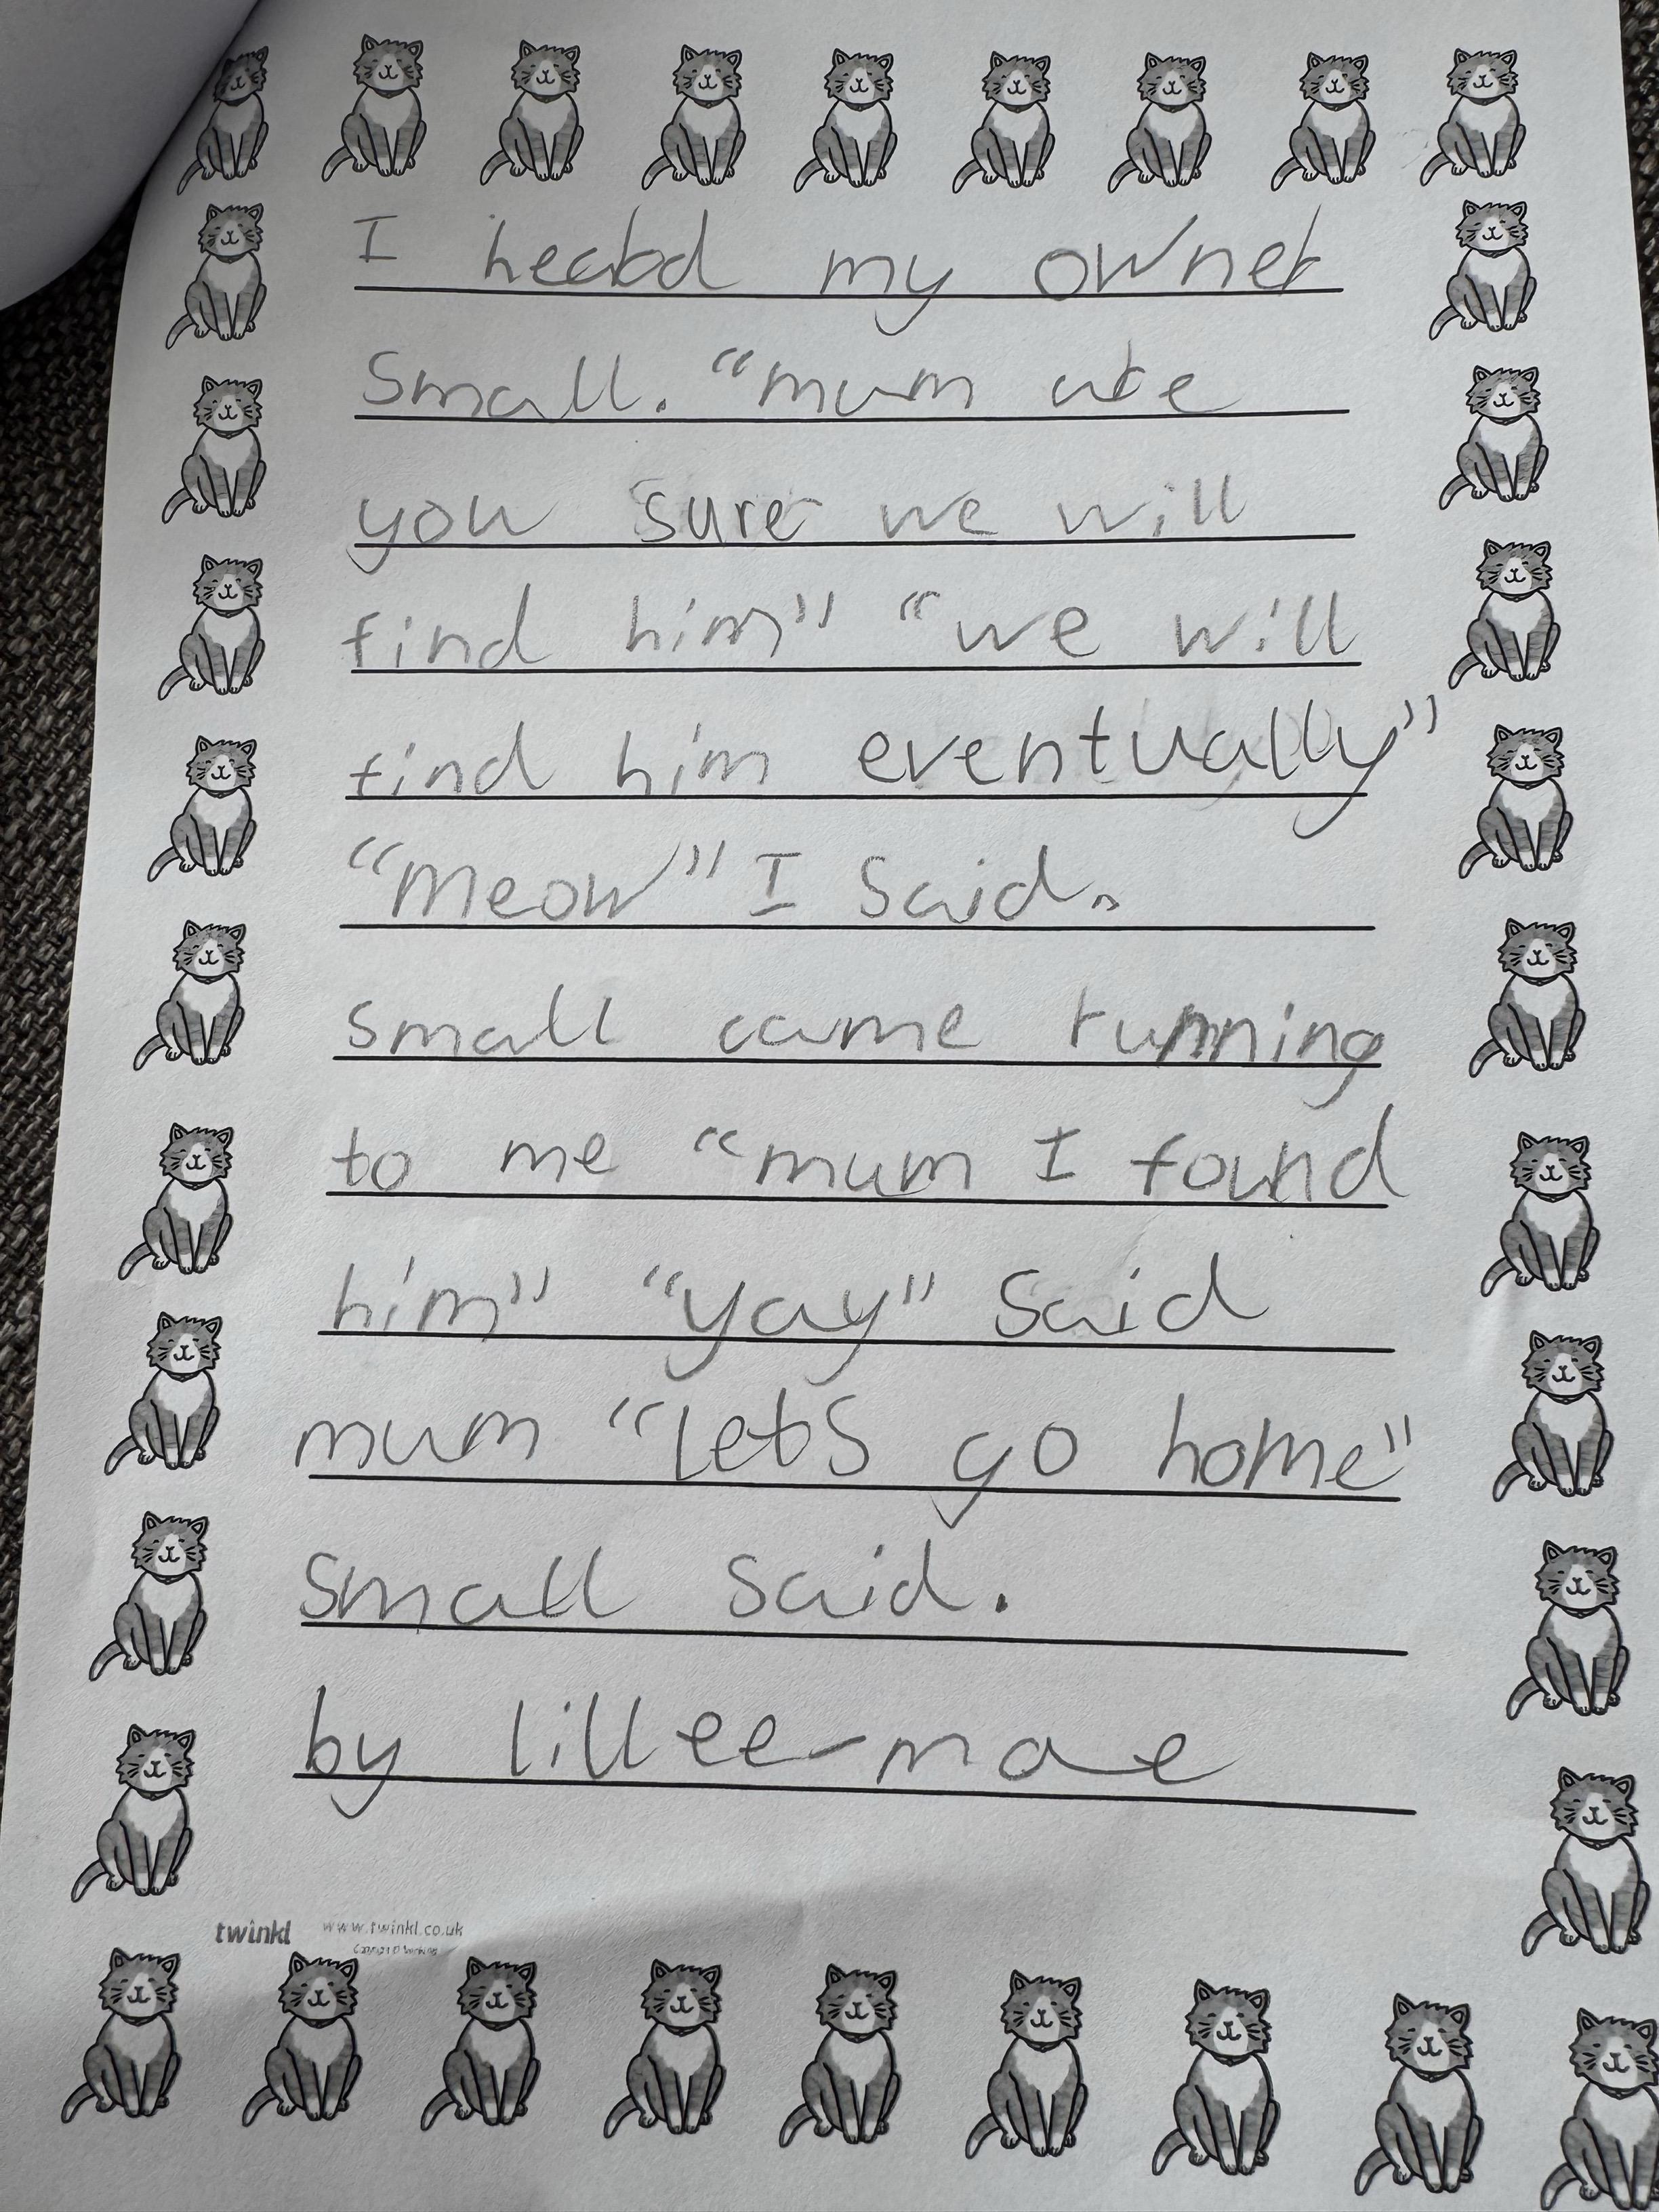 I heard my owner
small. "mum are
you sure we will
find him" "we will
find him eventually"
"meow" I said.
small came running
to me "mum I found
him" "yay" said
mum "lets go home"
small said.
by lillee-mae
twinkl www.twinkl.co.uk